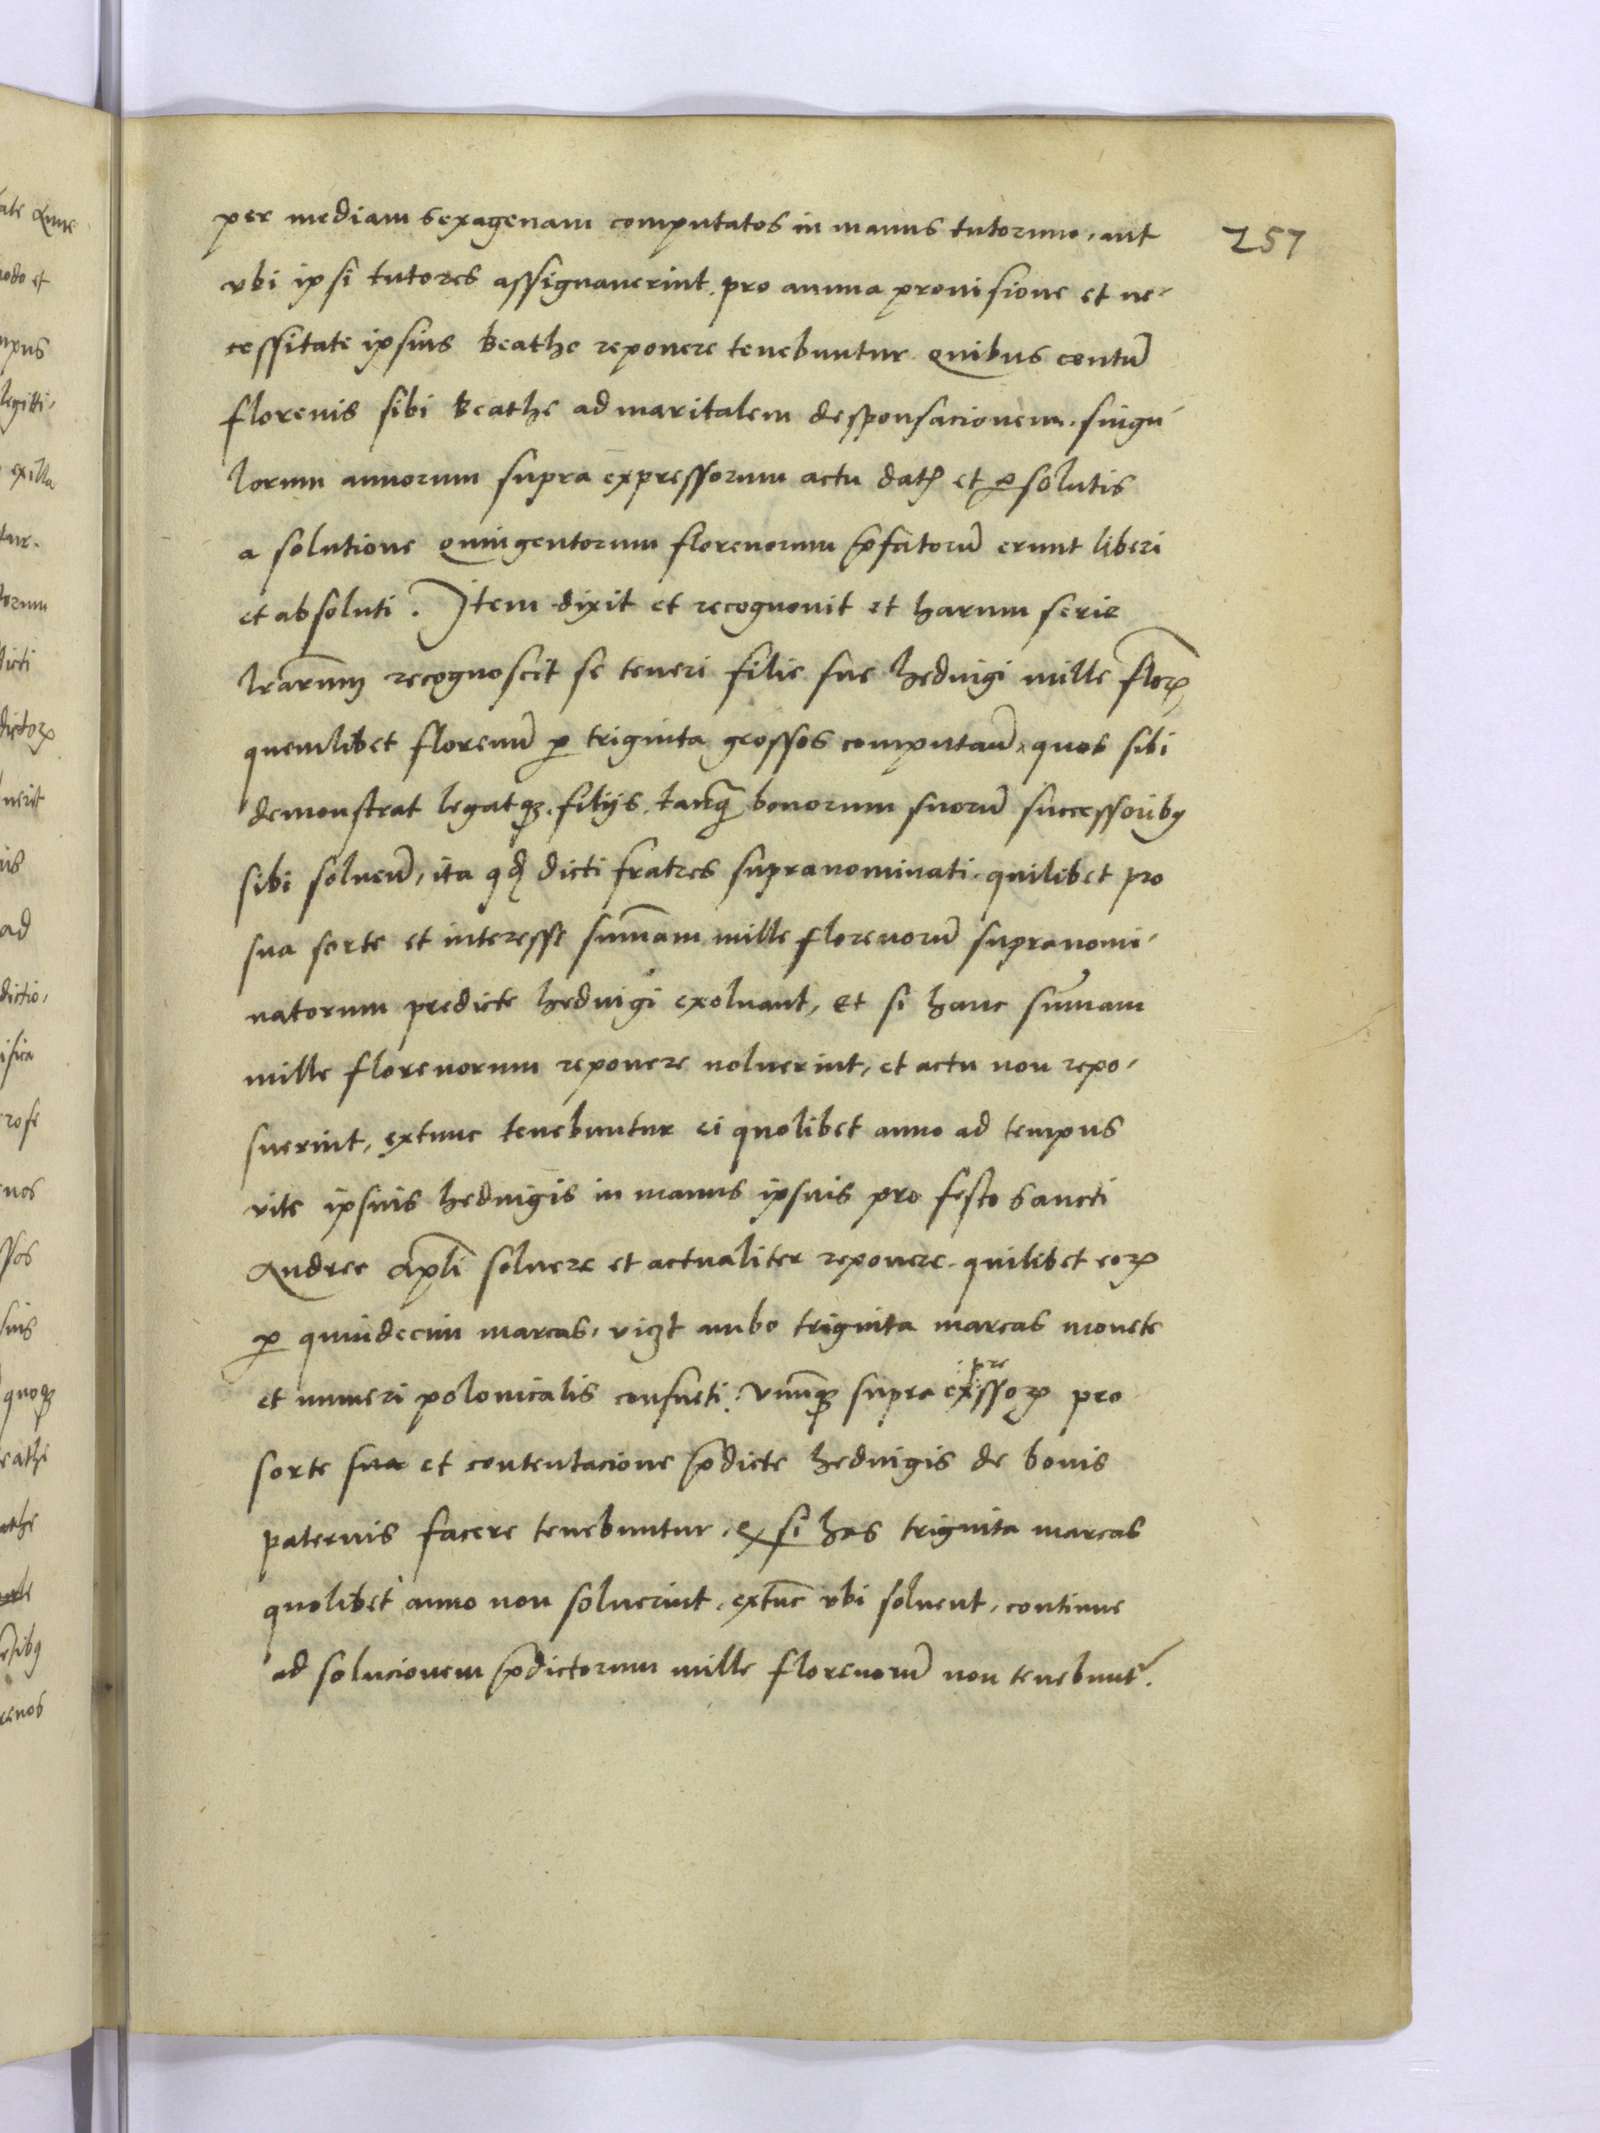 257
per mediam sexagenam computatos in manus tutorum, aut
vbi ipsi tutores assignauerint, pro annua prouisione et ne-
cessitate ipsius Beathe reponere tenebuntur. Quibus centũ
florenis sibi Beathe ad maritalem desponsacionem. singu-
lorum annorum supra expressorum actu datꝭ et ꝑsolutis
a solutione quingentorum florenorum p̃fatorũ erunt liberi
et absoluti. Item dixit et recognouit et harum serie
lr̃arum recognoscit se teneri filie sue Heduigi mille florꝭ
quemlibet florenũ ꝑ triginta grossos computañ, quos sibi
demonstrat legatqꝫ. filijs tanq̃ bonorum suorũ successoribꝰ
sibi solueñ, ita qđ dicti fratres supranominati. quilibet pro
sua sorte et interesse sum̃am mille florenorũ supranomi-
natorum predicte Heduigi exoluant, et si hanc sum̃am
mille florenorum reponere noluerint, et actu non repo-
suerint, extunc tenebuntur ei quolibet anno ad tempus
vite ipsius Heduigis in manus ipsius pro festo Sancti
Andree Apl̃i soluere et actualiter reponere. quilibet eoꝝ
ꝑ quindecim marcas, vicꝫt ambo triginta marcas monete
et numeri polonicalis consueti. Vnusqꝫ supra exp̱ressoꝝ pro
sorte sua et contentacione p̃dicte Heduigis de bonis
paternis facere tenebuntur, & si has triginta marcas
quolibet anno non soluerint, extũc vbi soluent, continue
ad solucionem p̃dictorum mille florenorũ non tenebunt᷑.